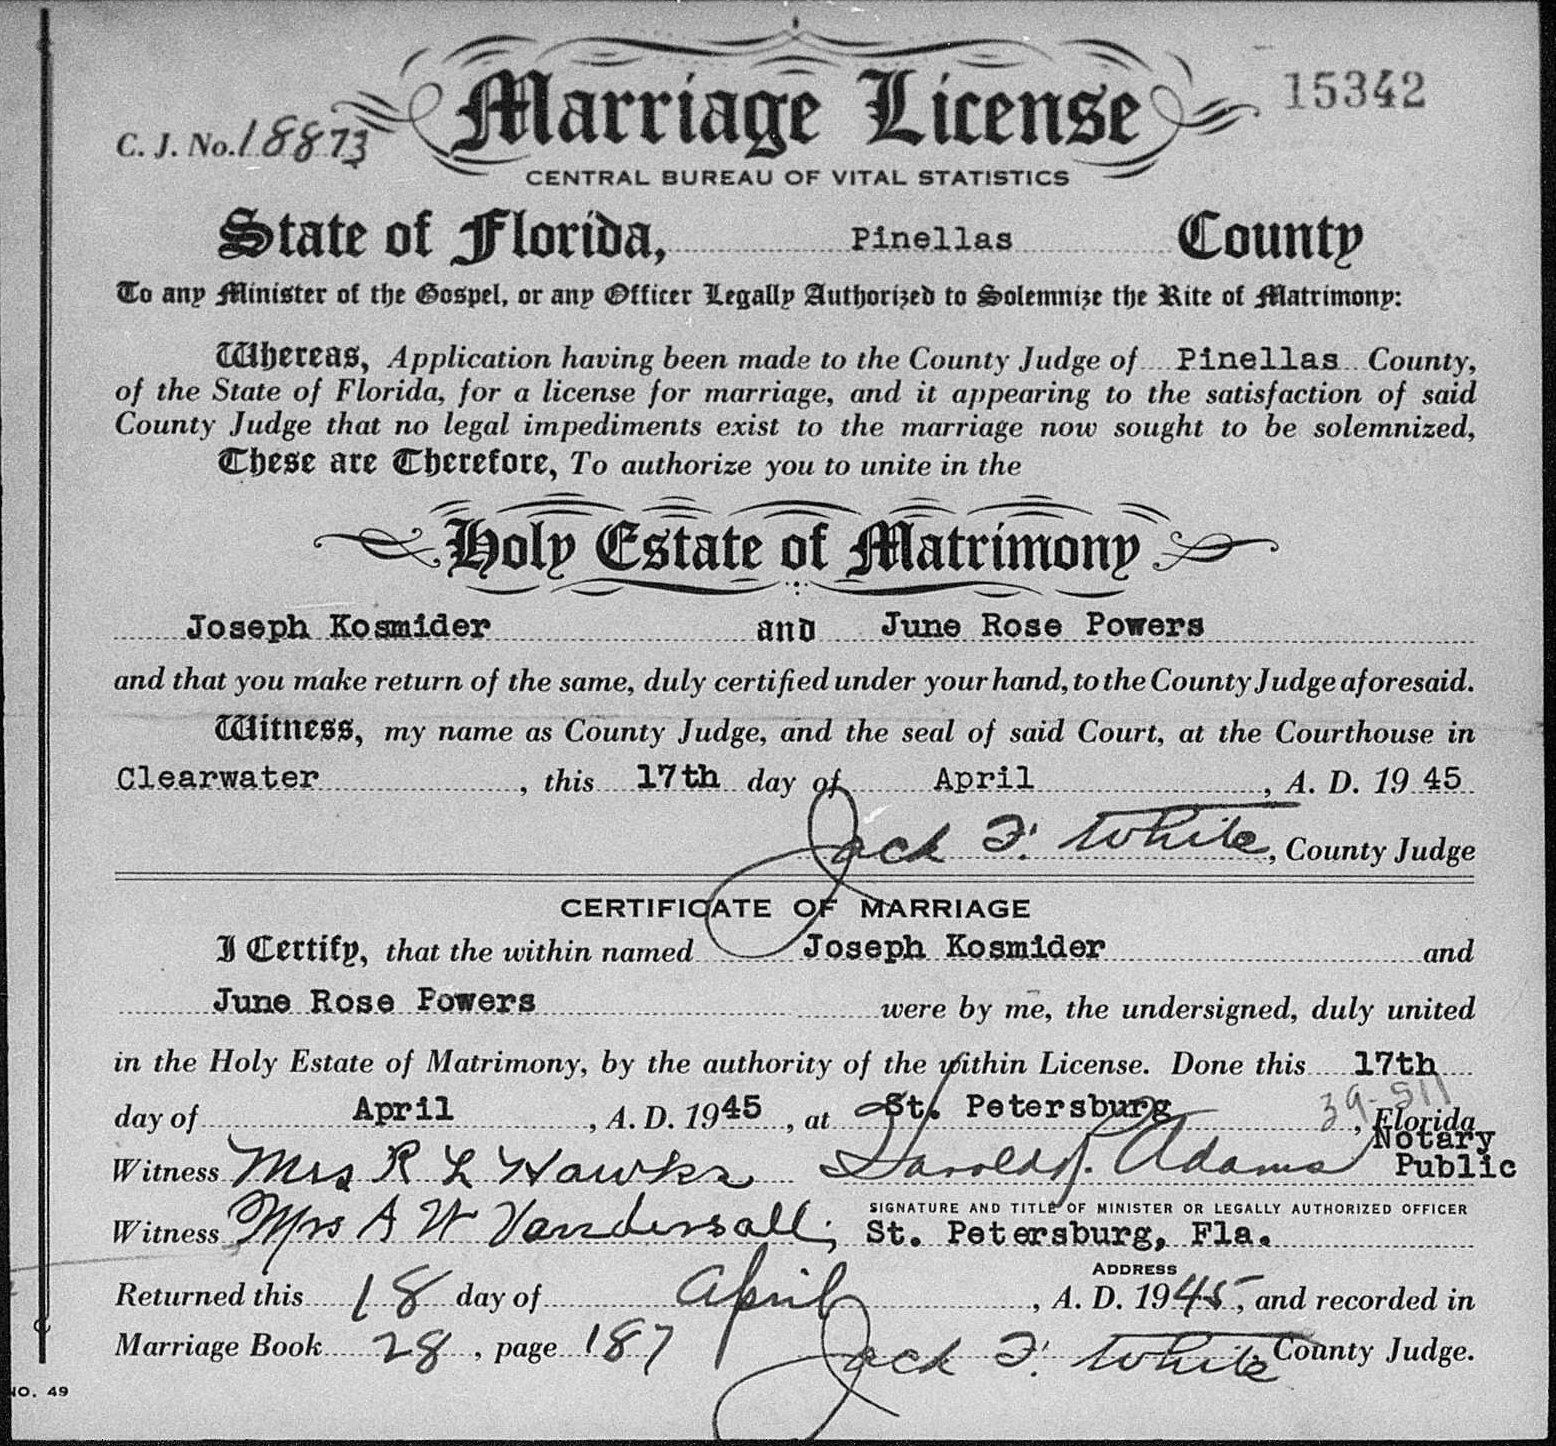 15342
Marriage License
C. J. No. 18873
CENTRAL BUREAU OF VITAL STATISTICS
State of Florida, Pinellas County
To any Minister of the Gospel, or any Officer Legally Authorized to Solemnize the Rite of Matrimony:
Whereas, Application having been made to the County Judge of Pinellas County,
of the State of Florida, for a license for marriage, and it appearing to the satisfaction of said
County Judge that no legal impediments exist to the marriage now sought to be solemnized,
These are Therefore, To authorize you to unite in the
Holy Estate of Matrimony
Joseph Kosmider and June Rose Powers
and that you make return of the same, duly certified under your hand, to the County Judge aforesaid.
Witness, my name as County Judge, and the seal of said Court, at the Courthouse in
Clearwater, this 17th day of April, A. D. 19 45
Jack F. White, County Judge
CERTIFICATE OF MARRIAGE
I Certify, that the within named Joseph Kosmider and
June Rose Powers were by me, the undersigned, duly united
in the Holy Estate of Matrimony, by the authority of the within License. Done this 17th
39-511
day of April, A. D. 1945, at St. Petersburg, Florida
Witness Mrs R L Hawks Harold J. Adams Notary Public
SIGNATURE AND TITLE OF MINISTER OR LEGALLY AUTHORIZED OFFICER
Witness Mrs A W Vandersall; St. Petersburg, Fla.
ADDRESS
Returned this 18 day of April, A. D. 1945, and recorded in
Marriage Book 28, page 187 Jack F. White County Judge.
NO. 49